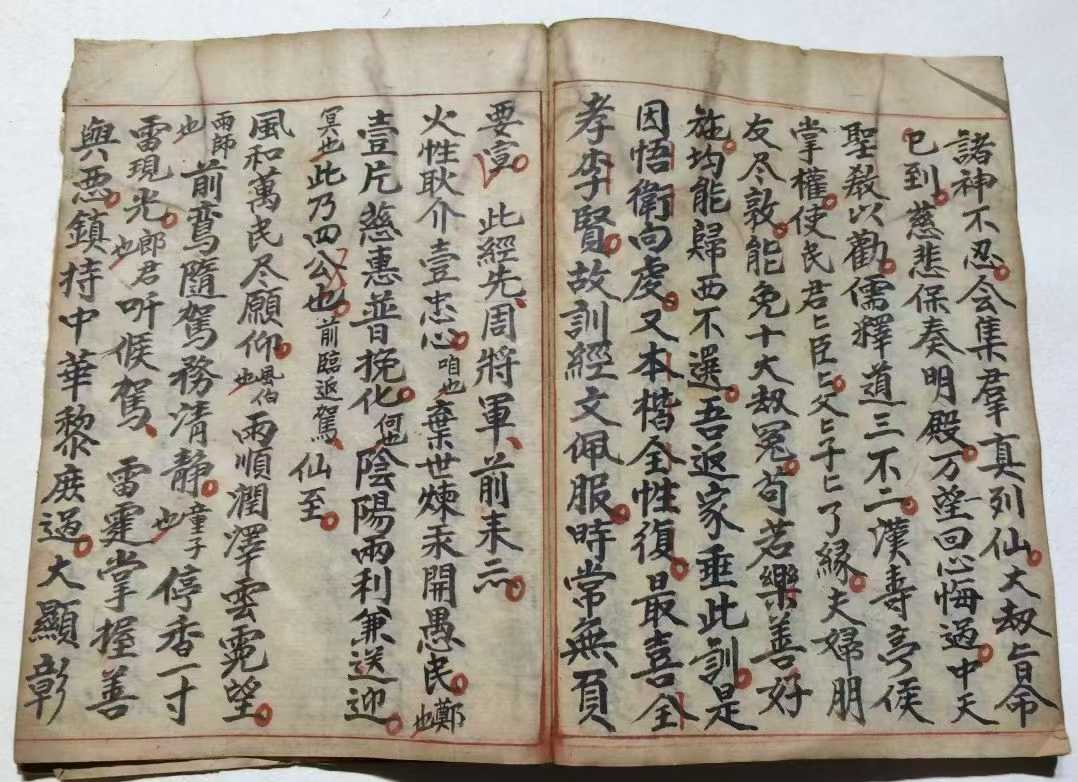 諸神不忍会集羣真列仙大劫上旨命
已到慈悲保奏明殿万望回心悔過中天
聖教以勸儒釋道三不二漢壽亭侯
掌權使民君匕臣匕父匕子匕了緣夫婦朋
友尽敦能免十大劫冤苟若樂善好
施均能歸西不選吾返家垂此訓是
因悟衛向虔又本楷全性復最喜全
孝李賢故訓經文佩服時常無頁
要宣此經先周將軍前来示
火性耿介壹忠心咱也棄世煉汞開愚民鄭也
壹片慈惠普挽化何也陰陽兩利兼送迎
冥也此乃四公也前臨返駕仙至
風和萬民尽願仰風伯也雨順潤澤雲霓望
雨師也前鸾隨駕務清静童子也停香一寸
雷現光郎君也听候駕雷霆掌握善
與惡鎮持中華黎庶過大顯彰